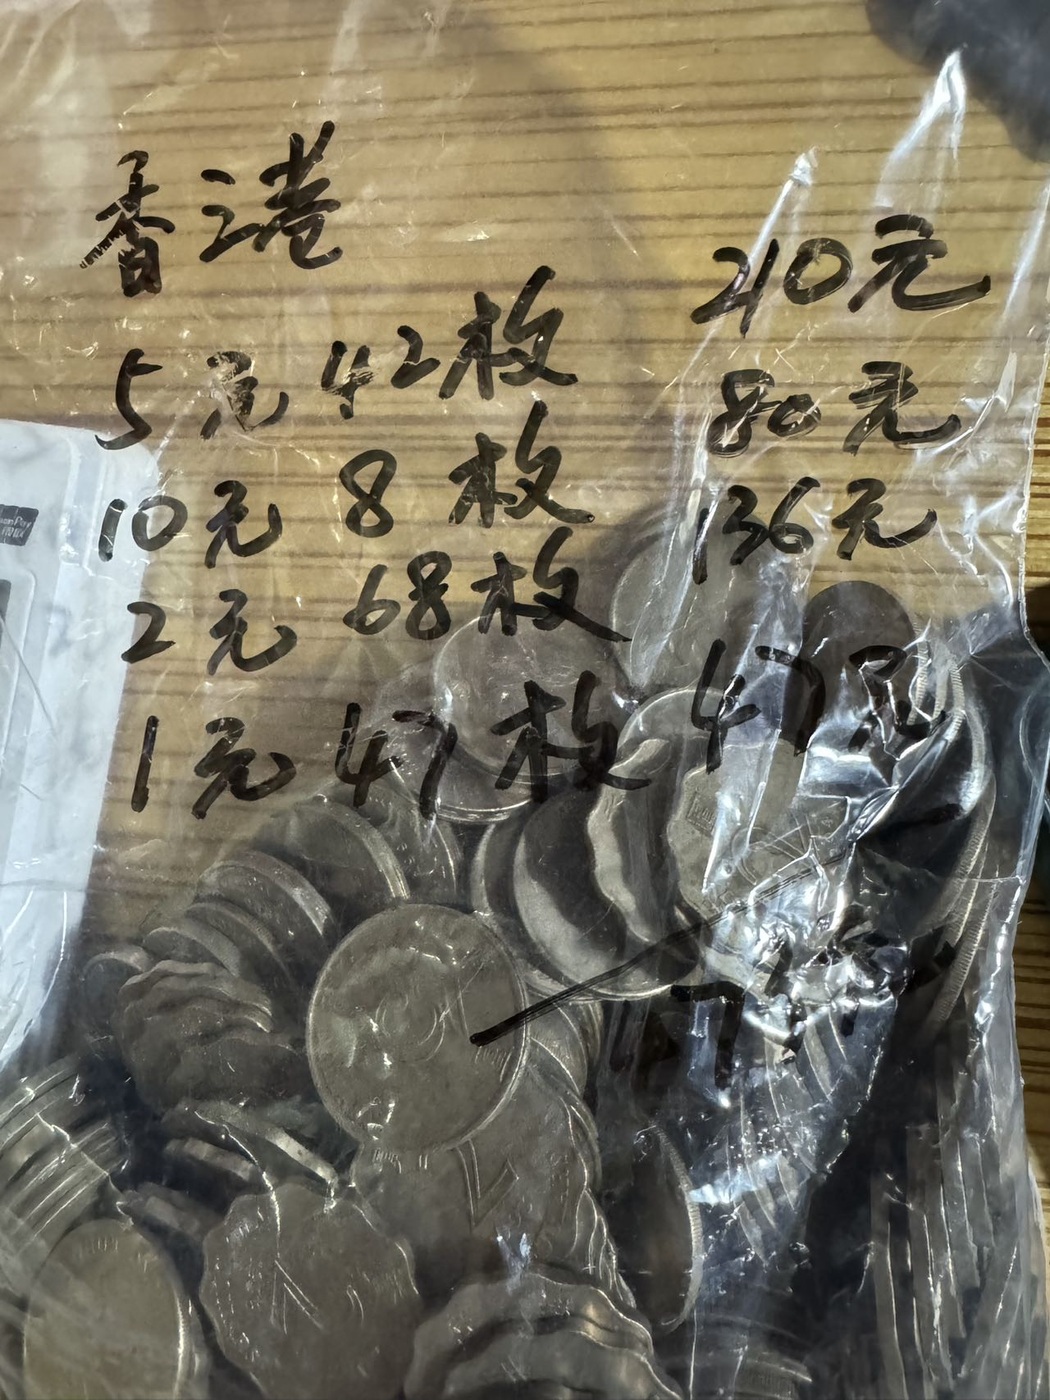 香港
5元 42枚 210元
10元 8枚 80元
2元 68枚 136元
1元 47枚 47元